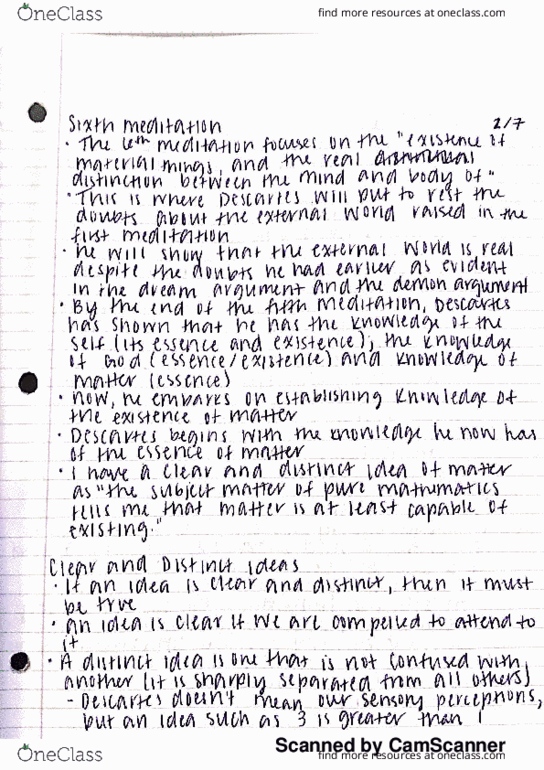 OneClass
find more resources at oneclass.com
Sixth meditation
2/7
· The 6th meditation focuses on the "existence of
material things, and the real
distinction between the mind and body of"
· This is where Descartes will put to rest the
doubts about the external world raised in the
first meditation
· he will show that the external world is real
despite the doubts he had earlier as evident
in the dream argument and the demon argument
· By the end of the fifth meditation, Descartes
has shown that he has the knowledge of the
self (its essence and existence), the knowledge
of God (essence/existence) and knowledge of
matter (essence)
· now, he embarks on establishing knowledge of
the existence of matter
· Descartes begins with the knowledge he now has
of the essence of matter
· I have a clear and distinct idea of matter
as "the subject matter of pure mathematics
tells me that matter is at least capable of
existing."
Clear and Distinct ideas
· If an idea is clear and distinct, then it must
be true
· an idea is clear if we are compelled to attend to
it
· A distinct idea is one that is not confused with
another (it is sharply separated from all others)
- Descartes doesn't mean our sensory perceptions,
but an idea such as 3 is greater than 1
Scanned by CamScanner
OneClass
find more resources at oneclass.com